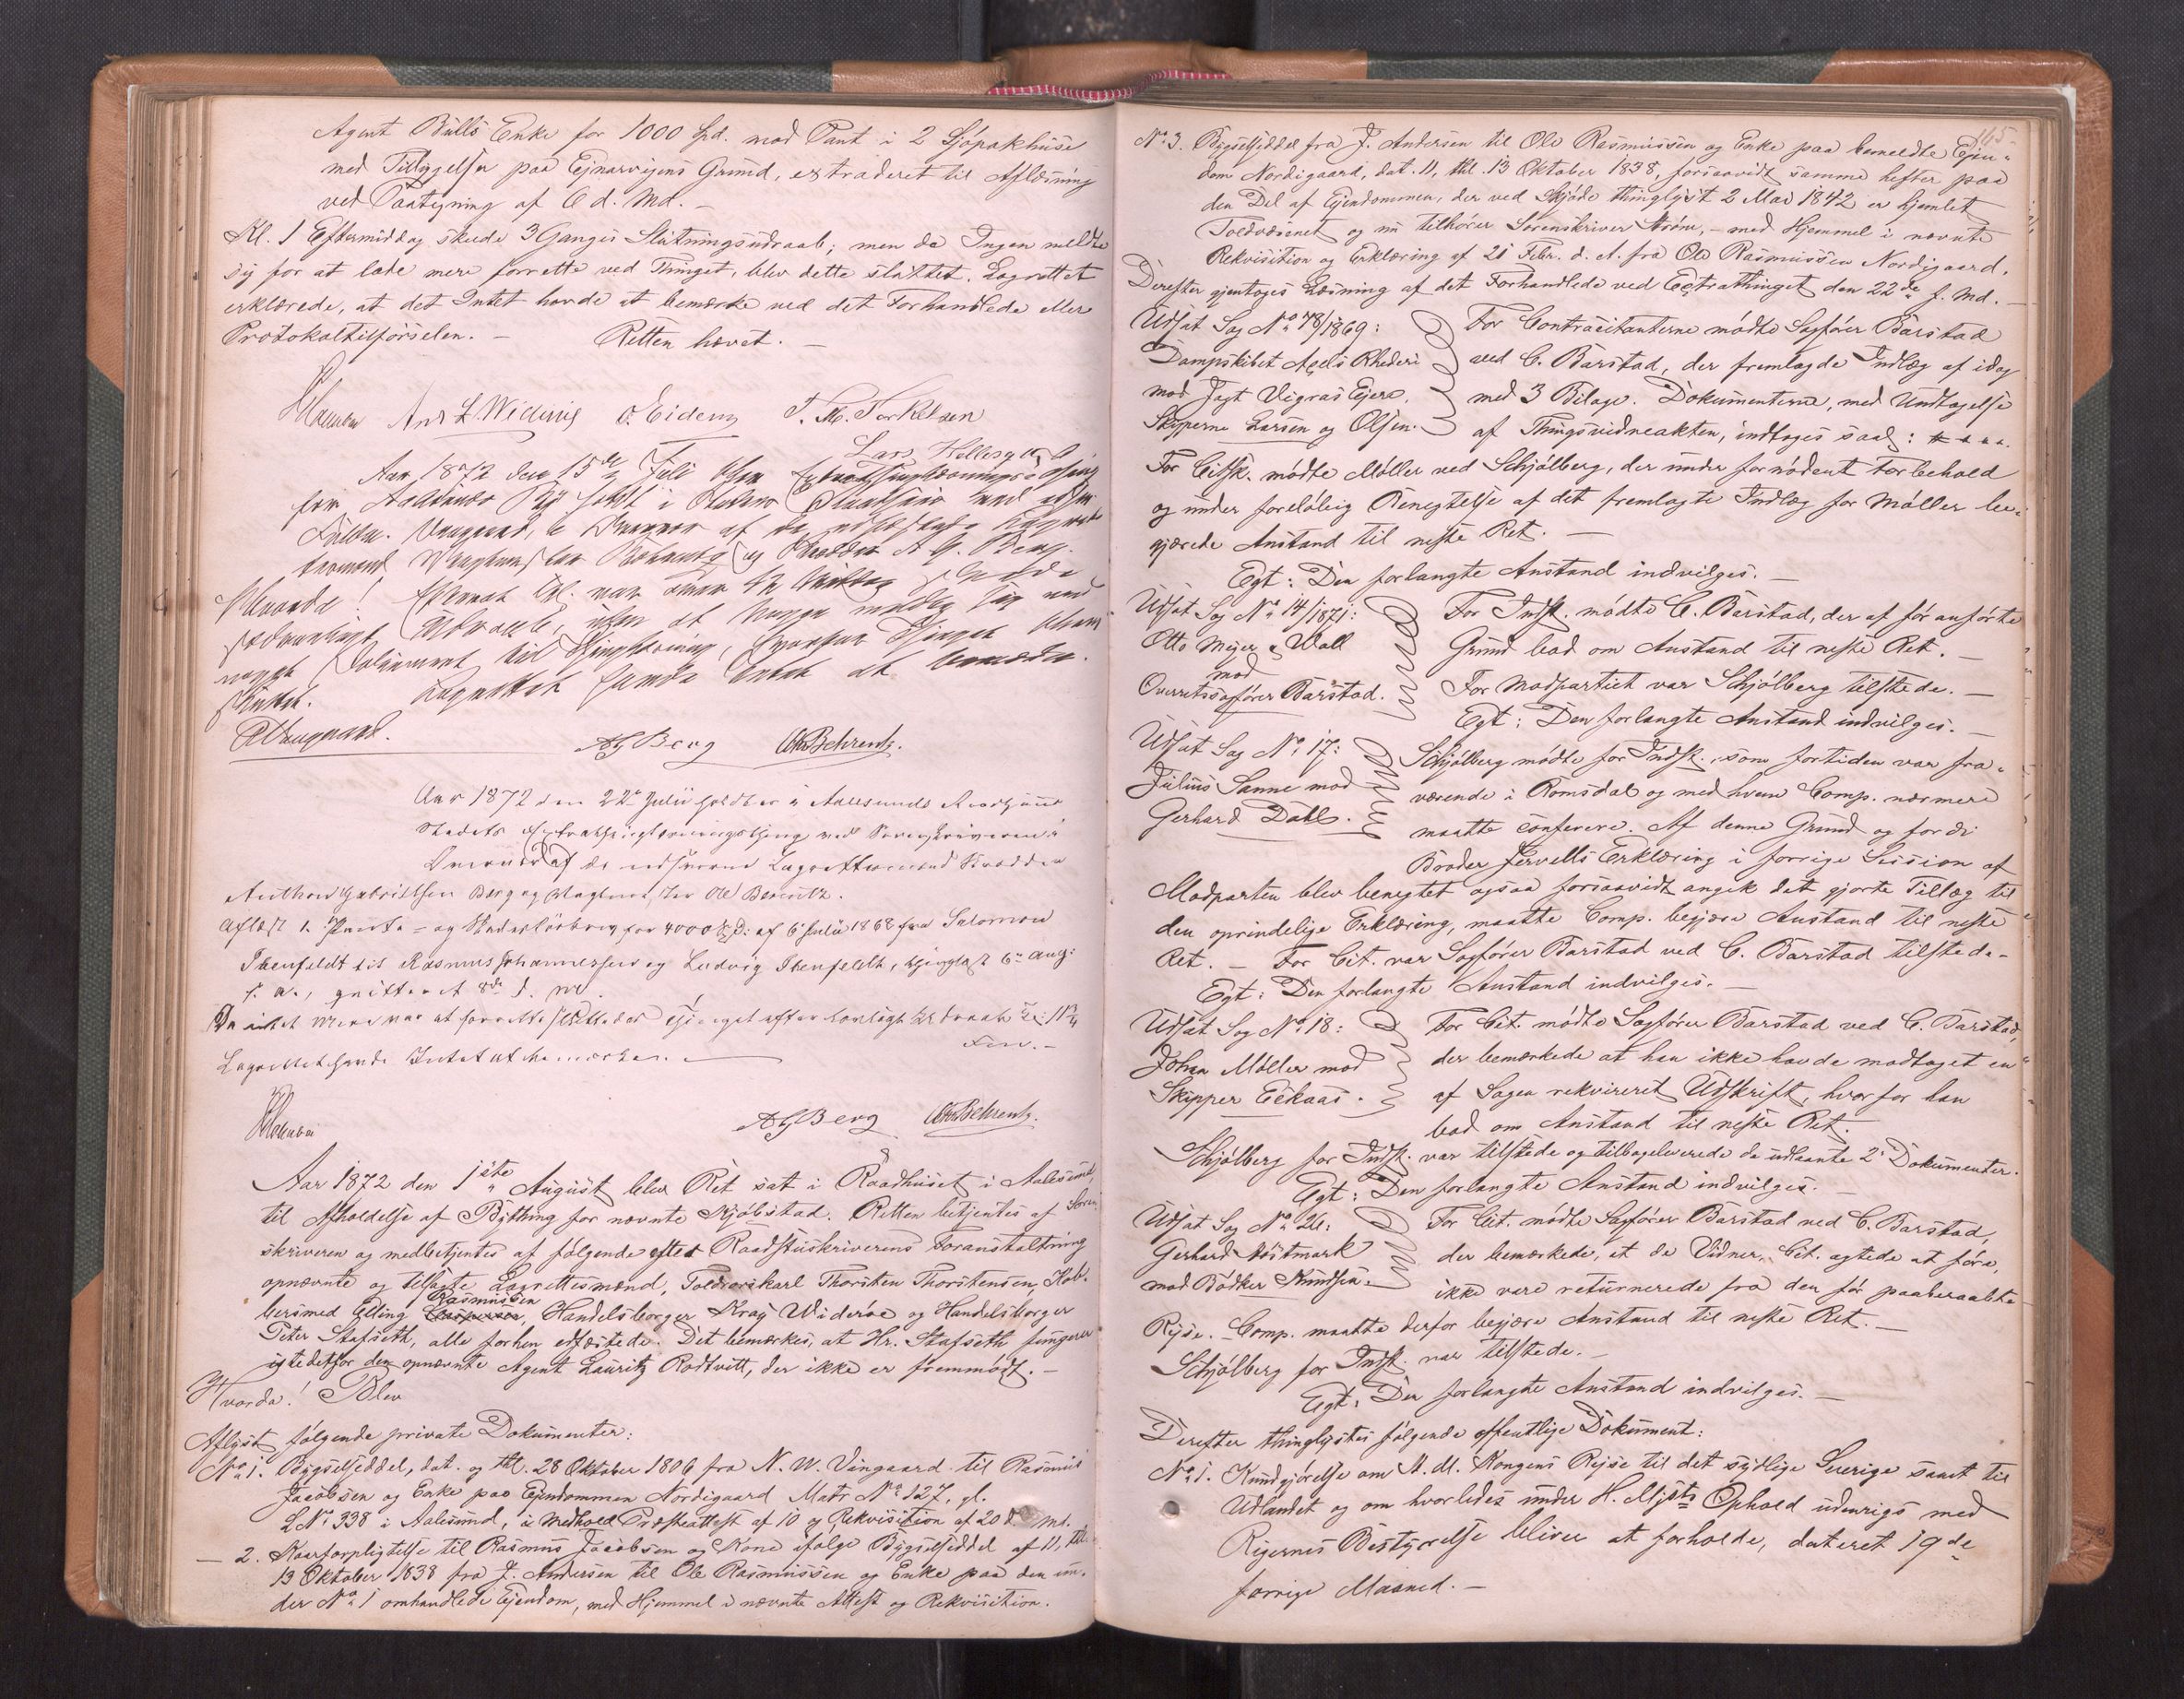 Agent Bülls Enke for 1000 Spd. mod Pant i 2 Sjöpakhüse
med Tilliggelse paa Ejnarvigens Grund, extraderet til Aflæsning
ved Paategning af 6 d. Md. –
Kl. 1 Eftermiddag skede 3 Ganges Slutningsudraab; men da Ingen meldte
sig for at lade mere forrette ved Thinget, blev dette sluttet. Lagrettet
erklærede, at det Intet havde at bemærke ved det Forhandlede eller
Protokoltilførselen. – Retten hævet. –
And L. Widerøe O. Eidem T. M. Torkelsen
Lars
Aar 1872 den 15de Juli blev Extrathinglæsningsthing
for Aalesunds By holdt i Stadens Raadhuus med
af de
A. G. Berg.
Hvorda!
sædvanligt Udraab, uden at nogen meldte sig med
noget Dokument til Thinglæsning, hvorfor Thinget blev
sluttet. Lagrettet havde Intet at bemærke.
AGBerg OleBehrentz.
Aar 1872 den 22de Juli holdtes i Aalesunds Raadhuus
Stadets Extrathinglæsningsthing ved Sorenskriveren i
Overvær af de edsvorne Lagrettesmænd
Anthon Gabrielsen Berg og Ole Berentz.
Aflæst 1. Pante- og for 4000 Spd: af 6 Juli 1868 fra Salomon
Ibenfeldt til Rasmus Johannessen og Ludvig Ibenfeldt, thinglæst 6te Aug:
s. A., qvitteret 8de d. Md.
Da intet mere var at forrette sluttedes Thinget efter lovligt Udraab Kl: 11¾
Form.–
Lagrettet havde Intet at bemærke. –
AGBerg OleBehrentz.
Aar 1872 den 1ste August blev Ret sat i Raadhuset i Aalesund,
til Afholdelse af Bything for nævnte Kjøbstad. Retten betjentes af Soren-
skriveren og medbetjentes af følgende efter Raadstuskriverens Foranstaltning
opnævnte og tilsagte Lagrettesmænd, Toldroerskarl Thorsten Thorstensen, Kob-
bersmed Elling Rasmussen, Handelsborger Krag Widerøe og Handelsborger
Peter Stafseth, alle forhen edfæstede. Det bemærkes, at Hr. Stafseth fungerer
istedetfor den opnævnte Agent Lauritz Rodtvitt, der ikke er fremmødt. –
Hvorda! Blev
Aflyst følgende private Dokumenter:
No 1. Bygselseddel, dat. og thl. 28 Oktober 1806 fra N. W. Vingaard til Rasmus
Jacobsen og Enke paa Ejendommen Nordigaard Matr No 127, gl.
L No 338 i Aalesund, i Medhold Præsteattest af 10 og Rekvisition af 20 d. Md.
– 2. Kaarforpligtelse til Rasmus Jacobsen og Kone ifølge Bygselseddel af 11, thl.
13 Oktober 1838 fra J. Andersen til Ole Rasmussen og Enke paa den un-
der No 1 omhandlede Ejendom, med Hjemmel i nævnte Attest og Rekvisition.
165
No 3. Bygselseddel fra J. Andersen til Ole Rasmussen og Enke paa bemeldte Ejen-
dom Nordigaard, dat. 11, thl. 13 Oktober 1838, forsaavidt samme hefter paa
den Del af Ejendommen, der ved Skjøde thinglyst 2 Mai 1842 er hjemlet
Toldvæsenet og nu tilhører Sorenskriver Strøm, – med Hjemmel i nævnte
Rekvisition og Erklæring af 21 Febr. d. A. fra Ole Rasmussen Nordigaard.
Derefter gjentoges Læsning af det Forhandlede ved Extrathinget den 22de f. Md. –
Udsat Sag No 78/1869:
Dampskibet Axels Rhederi
mod Jagt Vigras Ejere,
Skipperne Larsen og Olsen.
For Contracitanterne mødte Sagfører Barstad
ved C. Barstad, der fremlagde Indlæg af idag
med 3 Bilage. Dokumenterne, med Undtagelse
af Thingsvidneakten, indtages saal:
For Citsk. mødte Møller ved Schjølberg, der under fornødent Forbehold
og under foreløbig Benegtelse af det fremlagte Indlæg for Møller be-
gjærede Anstand til neste Ret. –
Egt: Den forlangte Anstand indvilges. –
Udsat Sag No 14/1871:
Otto Meyer & Wall
mod
Overretssagfører Barstad.
For Indst. mødte C. Barstad, der af før anførte
Grund bad om Anstand til neste Ret. –
For Modpartiet var Schjølberg tilstede. –
Egt: Den forlangte Anstand indvilges. –
Udsat Sag No 17:
Julius Sanne mod
Gerhard Dahl.
Schjølberg mødte for Indst., som fortiden var fra-
værende i Romsdal og med hvem Comp. nærmere
maatte conferere. Af denne Grund og fordi
Broder Jervells Erklæring i forrige Session af
Modparten blev benegtet ogsaa forsaavidt angik det gjorte Tillæg til
den oprindelige Erklæring, maatte Comp. begjære Anstand til neste
Ret. – For Cit. var Sagfører Barstad ved C. Barstad tilstede. –
Egt: Den forlangte Anstand indvilges. –
Udsat Sag No 18:
Johan Møller mod
Skipper Eekaas.
For Cit. mødte Sagfører Barstad ved C. Barstad,
der bemærkede at han ikke havde modtaget en
af Sagen rekvireret Udskrift, hvorfor han
bad om Anstand til neste Ret.
Schjølberg for Indst. var tilstede og tilbageleverede de udlaante 2 Dokumenter.
Egt: Den forlangte Anstand indvilges. –
Udsat Sag No 26:
Gerhard Røstmark
mod Bødker Knudsen.
For Cit. mødte Sagfører Barstad ved C. Barstad,
der bemærkede, at de Vidner, Cit. agtede at føre,
ikke vare returnerede fra den før paaberaabte
Rejse. Comp. maatte derfor begjære Anstand til neste Ret. –
Schjølberg for Indst. var tilstede. –
Egt: Den forlangte Anstand indvilges. –
Derefter thinglystes følgende offentlige Dokument:
No 1. Kundgjørelse om H. M. Kongens Rejse til det sydlige Sverige samt til
Udlandet og om hvorledes under H. Mjsts Ophold udenrigs med
Rigernes Bestyrelse bliver at forholde, dateret 19de
forrige Maaned. –